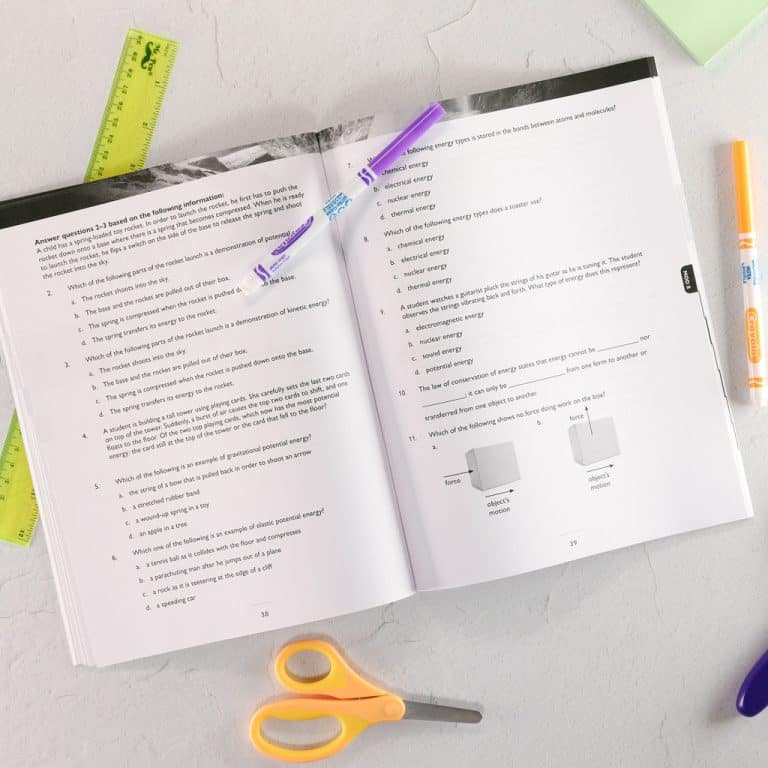 Answer questions 2–3 based on the following information:
A child has a spring-loaded toy rocket. In order to launch the rocket, he first has to push the
rocket down onto a base where there is a spring that becomes compressed. When he is ready
to launch the rocket, he flips a switch on the side of the base to release the spring and shoot
the rocket into the sky.
2. Which of the following parts of the rocket launch is a demonstration of potential
a. The rocket shoots into the sky.
b. The base and the rocket are pulled out of their box.
c. The spring is compressed when the rocket is pushed the base.
d. The spring transfers its energy to the rocket.
3. Which of the following parts of the rocket launch is a demonstration of kinetic energy?
a. The rocket shoots into the sky.
b. The base and the rocket are pulled out of their box.
c. The spring is compressed when the rocket is pushed down onto the base.
d. The spring transfers its energy to the rocket.
4. A student is building a tall tower using playing cards. She carefully sets the last two cards
on top of the tower. Suddenly, a burst of air causes the top two cards to shift, and one
floats to the floor. Of the two top playing cards, which now has the most potential
energy: the card still at the top of the tower or the card that fell to the floor?
5. Which of the following is an example of gravitational potential energy?
a. the string of a bow that is pulled back in order to shoot an arrow
b. a stretched rubber band
c. a wound-up spring in a toy
d. an apple in a tree
6. Which one of the following is an example of elastic potential energy?
a. a tennis ball as it collides with the floor and compresses
b. a parachuting man after he jumps out of a plane
c. a rock as it is teetering at the edge of a cliff
d. a speeding car
38
7. following energy types is stored in the bonds between atoms and molecules?
chemical energy
b. electrical energy
c. nuclear energy
d. thermal energy
8. Which of the following energy types does a toaster use?
a. chemical energy
b. electrical energy
c. nuclear energy
d. thermal energy
9. A student watches a guitarist pluck the strings of his guitar as he is tuning it. The student
observes the strings vibrating back and forth. What type of energy does this represent?
a. electromagnetic energy
b. nuclear energy
c. sound energy
d. potential energy
10. The law of conservation of energy states that energy cannot be __________ nor
__________, it can only be __________ from one form to another or
transferred from one object to another.
11. Which of the following shows no force doing work on the box?
a. b.
force force
object's motion
object's motion
39
MOD 5
Crayola